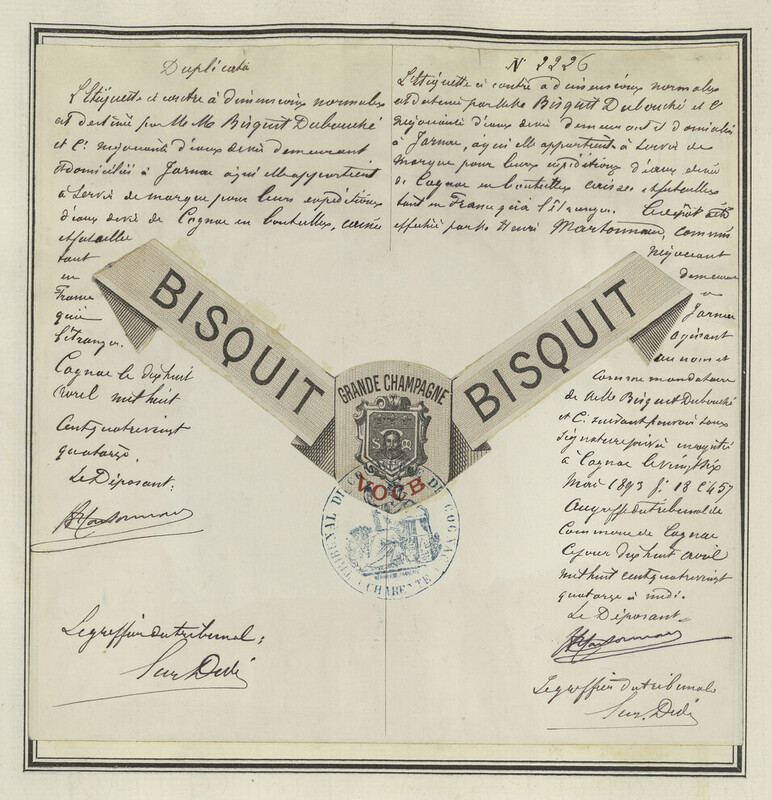 Duplicata
L'Etiquette ci contre à dimensions normales
est destinée par MM Bisquit Dubouché
et Cie négociants d'eaux de vie demeurant
et domiciliés à Jarnac à qui elle appartient
à servir de marque pour leurs expéditions
d'eaux de vie de Cognac en bouteilles, caisses
et futaille
tant
en
France
qu'à
l'étranger.
Cognac le dix huit
Avril mil huit
cent quatre vingt
quatorze.
Le Déposant:
Le greffier du tribunal;
N 2226
L'Etiquette ci contre à dimensions normales
est destinée par MM Bisquit Dubouché et Cie
négociants d'eaux de vie demeurant et domiciliés
à Jarnac, à qui elle appartient à servir de
marque pour leurs expéditions d'eaux de vie
de Cognac en bouteilles caisses et futailles
tant en France qu'à l'étranger. Ce dépôt a été
effectué par Mr Henri Martonneau, commis
négociant
demeurant
à
Jarnac
agissant
au nom et
comme mandataire
de MM Bisquit Dubouché
et Cie suivant pouvoir sous
signature privée enregistré
à Cognac le vingt six
Mai 1893 fo 18 Co 457
Au greffe du tribunal de
Commerce de Cognac
Ce jour dix huit avril
mil huit cent quatre vingt
quatorze à midi.
Le Déposant
Le greffier du tribunal
BISQUIT
GRANDE CHAMPAGNE
VOCB
BISQUIT
TRIBUNAL DE COMMERCE DE COGNAC
(CHARENTE)